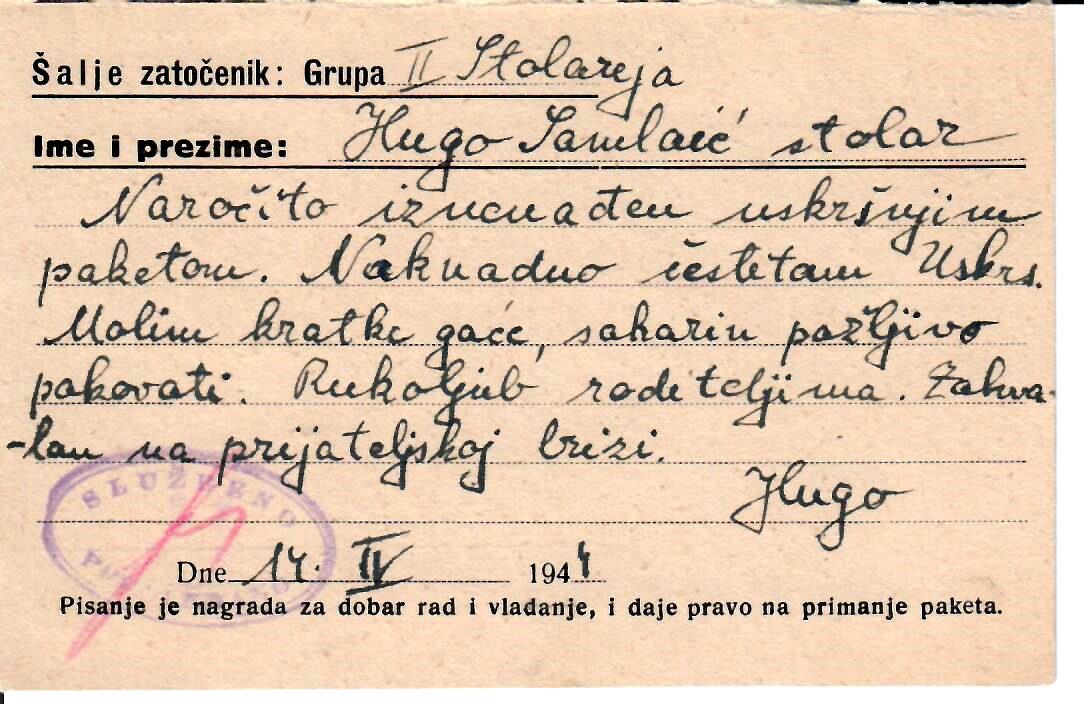 Šalje zatočenik: Grupa II Stolareja
Ime i prezime: Hugo Samlaić stolar
Naročito iznenađen uskršnjim
paketom. Naknadno čestitam Uskrs.
Molim kratke gaće, saharin pažljivo
pakovati. Rukoljub roditeljima. Zahva-
-lan na prijateljskoj brizi.
Hugo
SLUŽBENO
Dne 14. IV 1944
Pisanje je nagrada za dobar rad i vladanje, i daje pravo na primanje paketa.